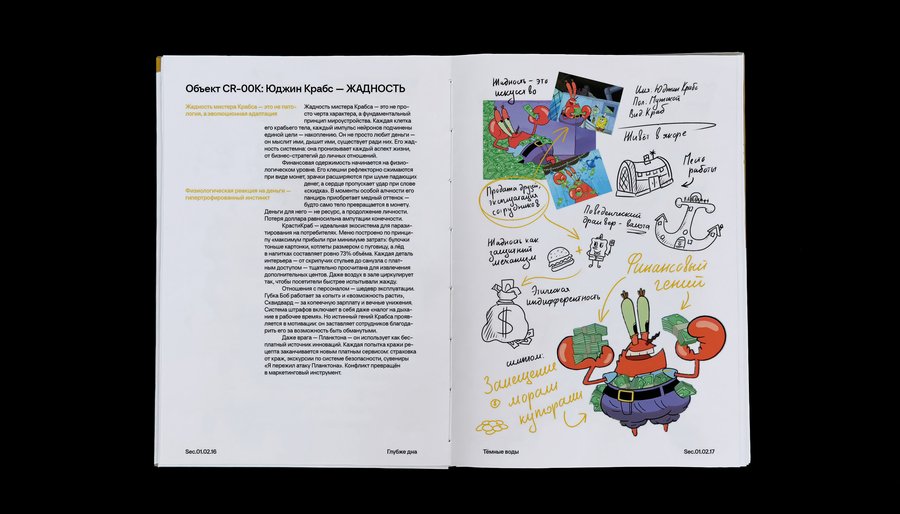 Объект CR-00K: Юджин Крабс — ЖАДНОСТЬ
Жадность мистера Крабса — это не пато-
логия, а эволюционная адаптация
Жадность мистера Крабса — это не про-
сто черта характера, а фундаментальный
принцип мироустройства. Каждая клетка
его крабьего тела, каждый импульс нейронов подчинены
единой цели — накоплению. Он не просто любит деньги —
он мыслит ими, дышит ими, существует ради них. Его жад-
ность системна: она пронизывает каждый аспект жизни,
от бизнес-стратегий до личных отношений.
Финансовая одержимость начинается на физио-
логическом уровне. Его клешни рефлекторно сжимаются
при виде монет, зрачки расширяются при шуме падающих
Физиологическая реакция на деньги —
гипертрофированный инстинкт
денег, а сердце пропускает удар при слове
«скидка». В моменты особой алчности его
панцирь приобретает медный оттенок —
будто само тело превращается в монету.
Деньги для него — не ресурс, а продолжение личности.
Потеря доллара равносильна ампутации конечности.
КрастиКраб — идеальная экосистема для парази-
тирования на потребителях. Меню построено по принци-
пу «максимум прибыли при минимуме затрат»: булочки
тоньше картонки, котлеты размером с пуговицу, а лёд
в напитках составляет ровно 73% объёма. Каждая деталь
интерьера — от скрипучих стульев до санузла с плат-
ным доступом — тщательно просчитана для извлечения
дополнительных центов. Даже воздух в зале циркулирует
так, чтобы посетители быстрее испытывали жажду.
Отношения с персоналом — шедевр эксплуатации.
Губка Боб работает за «опыт» и «возможность расти»,
Сквидвард — за копеечную зарплату и вечные унижения.
Система штрафов включает в себя даже «налог на дыха-
ние в рабочее время». Но истинный гений Крабса проявля-
ется в мотивации: он заставляет сотрудников благода-
рить его за возможность быть обманутыми.
Даже врага — Планктона — он использует как бес-
платный источник инноваций. Каждая попытка кражи ре-
цепта заканчивается новым платным сервисом: страховка
от краж, экскурсии по системе безопасности, сувениры
«Я пережил атаку Планктона». Конфликт превращён
в маркетинговый инструмент.
Sec.01.02.16
Глубже дна
Жадность – это
искусство
Имя: Юджин Крабс
Пол: Мужской
Вид: Краб
Живёт в якоре
Место
работы
Продажа друзей,
эксплуатация
сотрудников
Поведенческий
драйвер – валюта
Жадность как
защитный
механизм
Финансовый
гений
Этическая
индифферентность
$
симптом:
Замещение
морали
купюрами
Тёмные воды
Sec.01.02.17